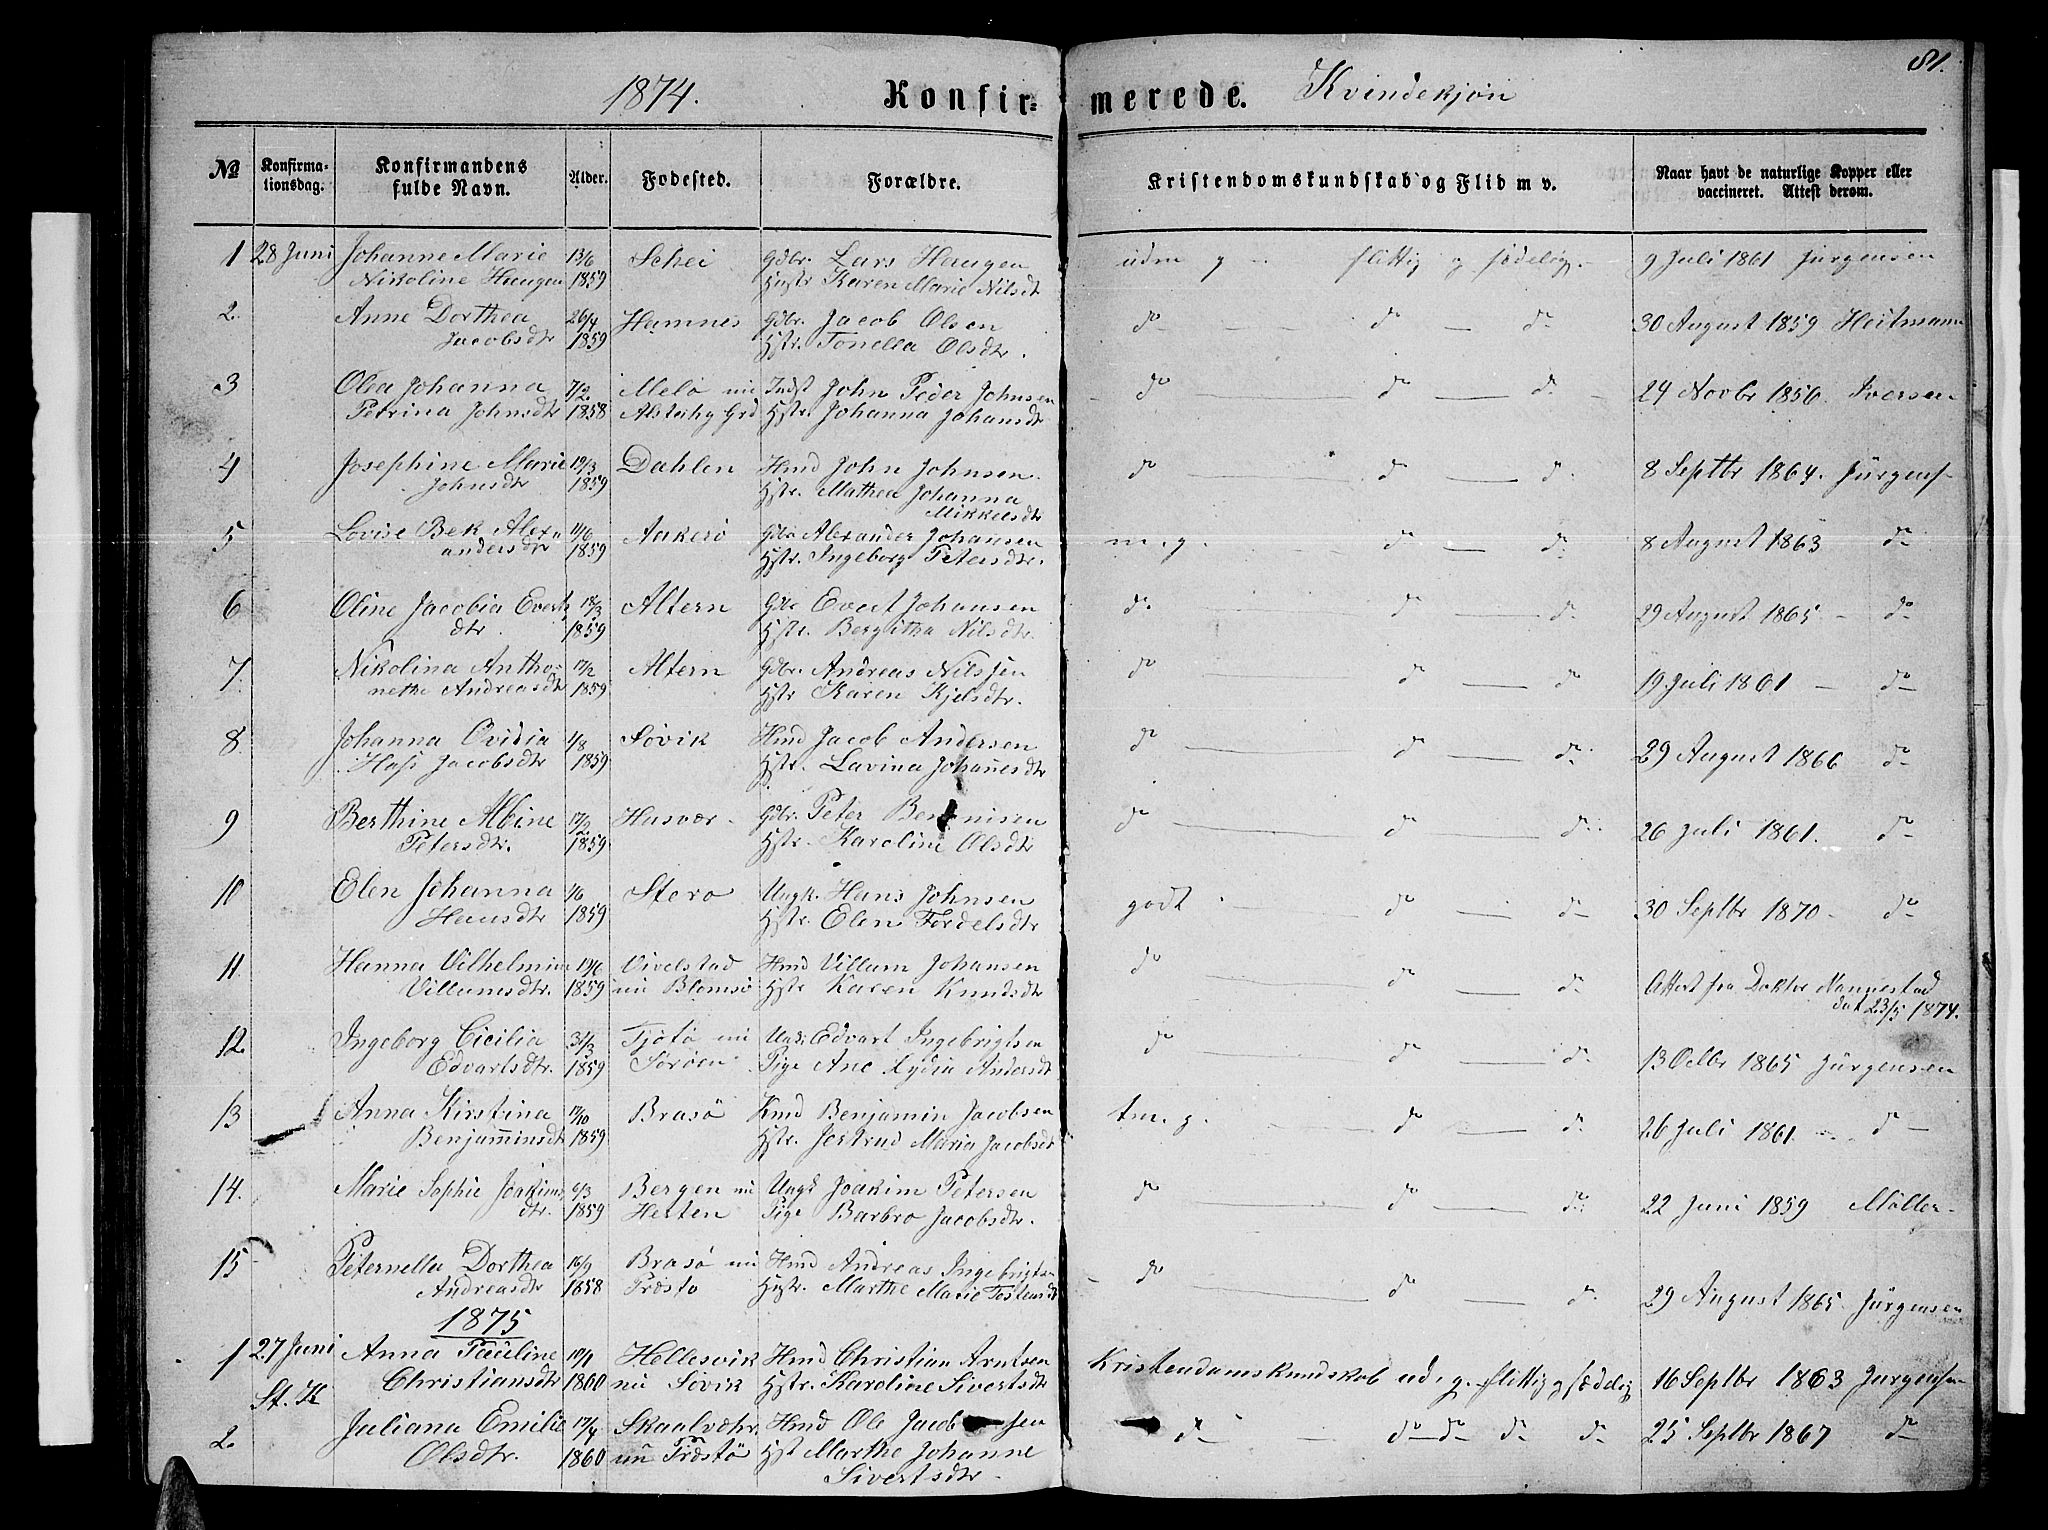 81.
1874. Konfir- merede. Kvindekjön
№ Konfirma-tionsdag. Konfirmandens fulde Navn. Alder. Fødested. Forældre. Kristendomskundskab og Flid m v. Naar havt de naturlige Kopper eller vaccineret. Attest derom.
1 28 Juni Johanne Marie 13/6 Schei Gdbr. Lars Haugen udm g flittig g sædelig. 9 Juli 1861 Jürgensen
Nikoline Haugen 1859 Hustr Karen Marie Nilsdtr
2. Anne Dorthea 26/4 Hamnes Gdbr. Jacob Olsen do do do 30 August 1859 Heitmann
Jacobsdtr 1859 Hstr. Tonella Olsdtr.
3 Olea Johanna 7/2 Melö nu Indst John Peder Johnsen do do do 24 Novbr 1856. Iversen
Petrina Johnsdtr 1858 Alstahg Grd Hstr. Johanna Johansdtr
4 Josephine Marie 19/3 Dahlen Hmd John Johnsen do do do 8 Septbr 1864. Jürgens-
Johnsdtr 1859 Hstr. Mathea Johanna
Mikkelsdtr
5 Lovise Bek Alex- 11/6 Aakerö Gdbr Alexander Johansen m. g. do do 8 August 1863 do
andersdtr 1859 Hstr. Ingeborg Petersdtr.
6 Oline Jacobia Everts 18/3 Altern Gdbr Evert Johansen do do do 29 August 1865 - do
dtr. 1859 Hstr. Bergitha Nilsdtr.
7 Nikolina Antho- 17/2 Altern Gdbr. Andreas Nilssen do do do 19 Juli 1861 - do
nette Andreasdtr 1859 Hstr Karen Kjelsdtr.
8 Johanna Ovidia 1/8 Sövik Hmd Jacob Andersen do do do 29 August 1866 do
Jacobsdtr 1859 Hstr. Lavina Johannesdtr
9 Berthine Albine 17/2 Husvær - Gdbr. Peter do do do 26 Juli 1861. do
Petersdtr. 1859 Hstr. Karoline Olsdtr
10 Elen Johanna 1/6 Stero Ungk. Hans Johnsen godt do do 30 Septbr 1870 - do
Hansdtr 1859 Hstr. Elen Tordelsdtr
11. Hanna Vilhelmine 19/6 Vivelstad Hmd Villum Johansen do do do Attest fra Doktor Nannestad
Villumsdtr. 1859 nu Blomsö Hstr Karen Knudsdtr dat 23/5 1874.
12. Ingeborg Cicilia 31/3 Tjötö nu Ungk: Edvart Ingebrigtsen do do do 13 Octbr 1865 Jürgensen
Edvartsdtr. 1859 Söröen Pige Ane Lydia Andersdtr
13 Anna Kirstina 17/10 Brasö Kmd Benjamin Jacobsen tm. g. do do 26 Juli 1861. do
Benjaminsdtr 1859 Hstr. Jertrud Maria Jacobsdtr
14. Marie Sophie Joakims 6/3 Bergen nu Ungk Joakim Petersen do do do 22 Juni 1859 Möller
dtr. 1859 Hesten Pige Barbro Jacobsdtr.
15 Peternella Dorthea 16/9 Brasö nu Hmd Andreas Ingebrigtsen do do do 29 August 1865. Jürgensen
Andreasdtr 1858 Prestö Hustr. Marthe Marie Tostensdtr
1875
1 27 Juni Anna Pauline 10/1 Hellesvik Hmd Christian Arntsen Kristendomskundskab ud. g. flittig g sædelig 16 Septbr 1863 Jurgensen
St. K Christiansdtr 1860 nu Sövik Hstr. Karoline Sivertsdtr
2. Juliana Emilie 17/4 Skaalvæhr Hmd Ole Jacob sen do do do do do 25 Septbr 1867 do
Olsdtr. 1860 nu Prestö Hst Marthe Johanne
Sivertsdtr.